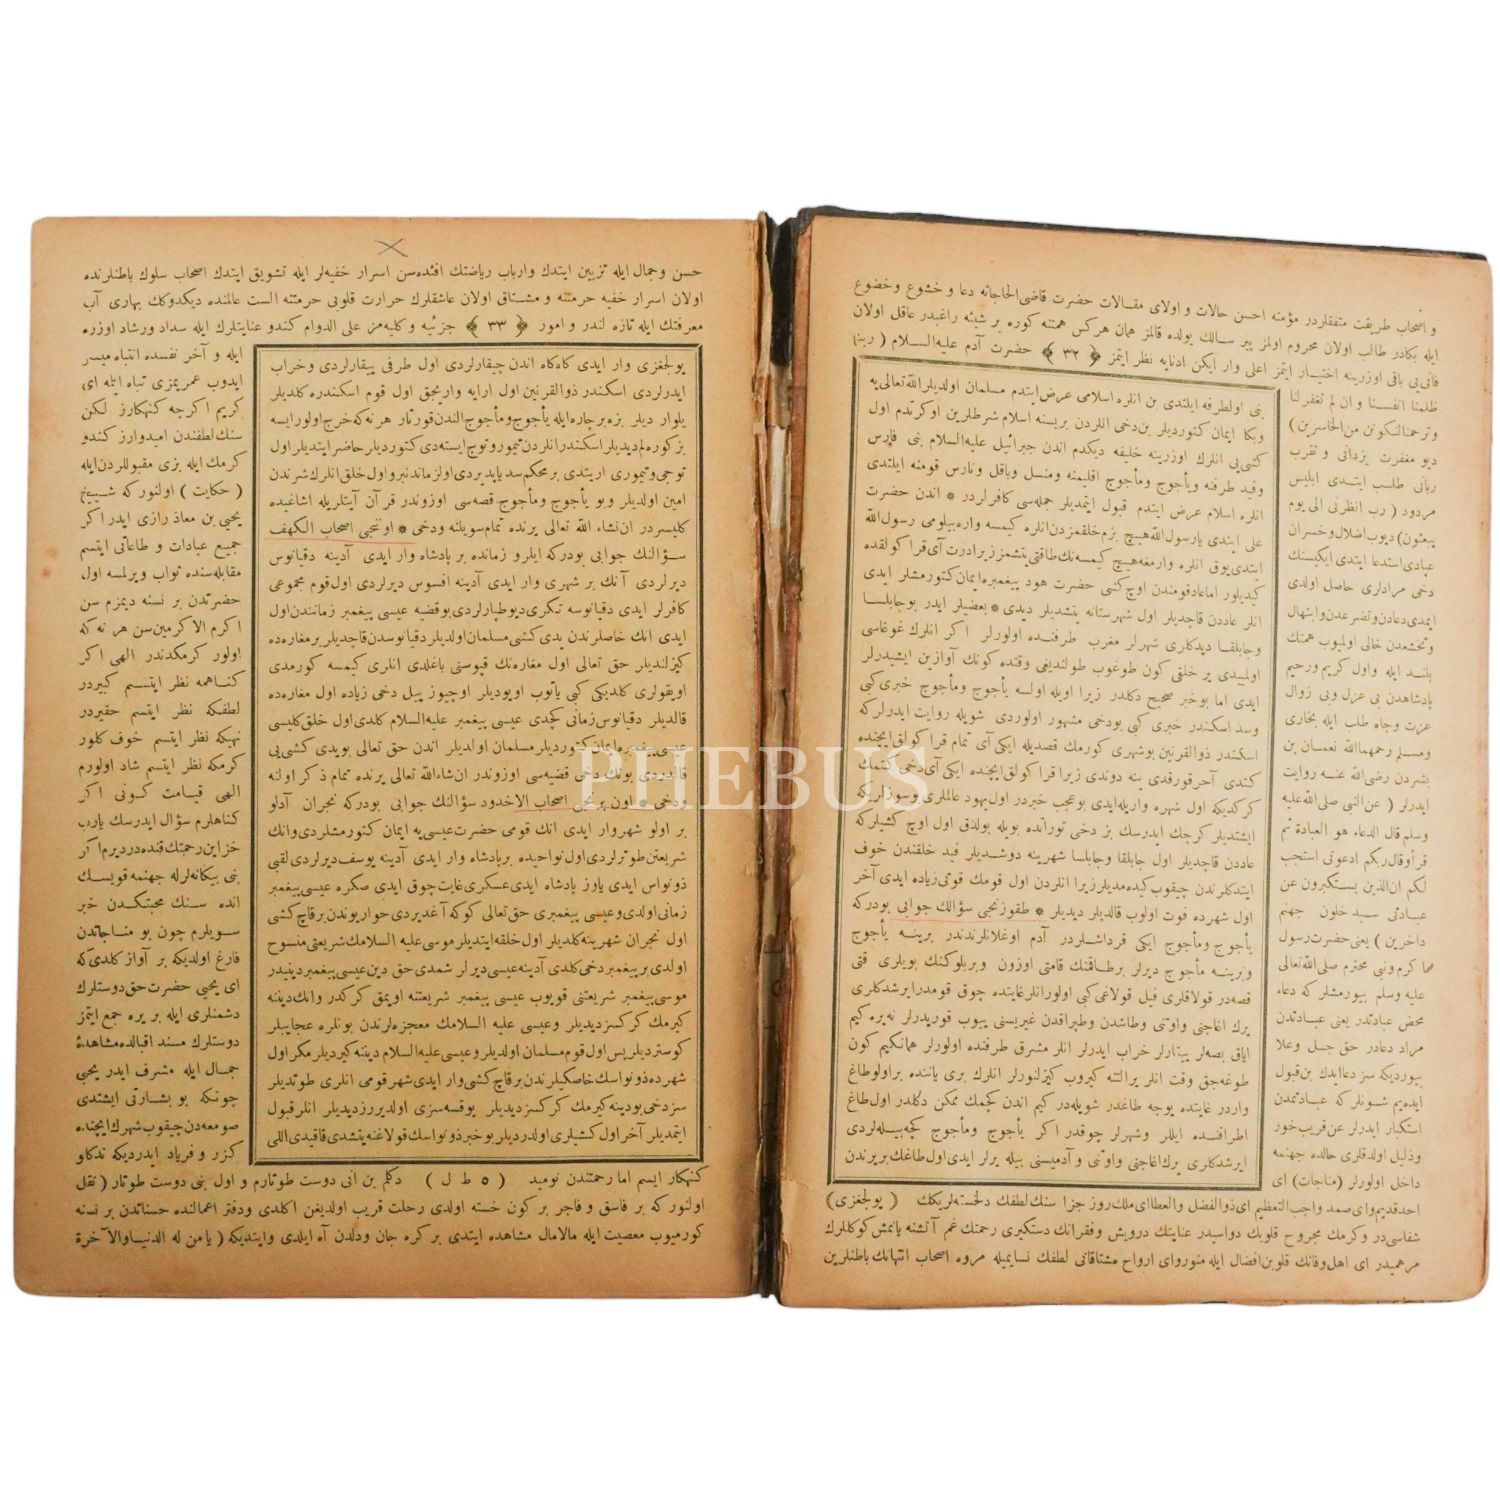 و اصحاب طریقت متفقلردر مؤمنه احسن حالات و اولای مقالات حضرت قاضی الحاجاته دعا و خشوع و خضوع
ایله بکادر طالب اولان محروم اولمز بیر سالك یولده قالمز همان هرکس همتنه کوره بر شیئه راغبدر عاقل اولان
فانی یی باقی اوزرینه اختیار ایتمز اعلی وار ایکن ادنایه نظر ایتمز ﴿ ٣٢ ﴾ حضرت آدم علیه السلام ( ربنا
ظلمنا انفسنا و ان لم تغفر لنا
وترحمنا لنکونن من الخاسرین )
دیو مغفرت یزدانی و تقرب
ربانی طلب ایتدی ابلیس
مردود ( رب انظرنی الی یوم
یبعثون) دیوب اضلال و خسران
عبادی استدعا ایتدی ایکیسنك
دخی مرادلری حاصل اولدی
ایمدی دعادن و تضرعدن و ابتهال
وتخشعدن خالی اولمیوب همتك
بلند ایله واول کریم و رحیم
پادشاهدن بی عزل وبی زوال
عزت و جاه طلب ایله بخاری
ومسلم رحمهما الله نعمان بن
بشردن رضی الله عنه روایت
ایدرلر ( عن النبی صلی الله علیه
وسلم قال الدعاء هو العبادة ثم
قرأ وقال ربکم ادعونی استجب
لکم ان الذین یستکبرون عن
عبادتی سیدخلون جهنم
داخرین ) یعنی حضرت رسول
اکرم و نبی محترم صلی الله تعالی
علیه وسلم بیورمشلر که دعاء
محض عبادتدر یعنی عبادتدن
مراد دعادر حق جل وعلا
بیوردیکه سز دعا ایدك بن قبول
ایده یم شونلر که عبادتمدن
استکبار ایدرلر عن قریب خور
وذلیل اولدقلری حالده جهنمه
داخل اولورلر (مناجات) ای
بنی اولطرفه ایلتدی بن انلره اسلامی عرض ایتدم مسلمان اولدیلر الله تعالی یه
وبکا ایمان کتوردیلر بن دخی انلردن بریسنه اسلام شرطلرین اوکرتدم اول
کشی یی انلرك اوزرینه خلیفه دیکدم اندن جبرائیل علیه السلام بنی فارس
وفید طرفنه و یأجوج ومأجوج اقلیمنه ومنسل وباقل و نارس قومنه ایلتدی
انلره اسلام عرض ایتدم قبول ایتمدیلر جمله سی کافرلردر * اندن حضرت
علی ایتدی یا رسول الله هیچ بزم خلقمزدن انلره کیمسه واره بیلومی رسول الله
ایتدی یوق انلره وارمغه هیچ کیمسه نك طاقتی یتشمز زیرا درت آی قراکولقده
کیدیلور اما عاد قومندن اوچ کشی حضرت هود پیغمبره ایمان کتورمشلر ایدی
انلر عاددن قاچدیلر اول شهرستانه یتشدیلر دیدی * بعضیلر ایدر بو جابلسا
وجابلقا دیدکلری شهرلر مغرب طرفنده اولورلر اکر انلرك غوغاسی
اولمیدی یر خلقی کون طوغوب طولندیغی وقنده کونك آوازین ایشیدرلر
ایدی اما بو خبر صحیح دکلدر زیرا اویله اولسه یأجوج ومأجوج خبری کبی
وسد اسکندر خبری کبی بو دخی مشهور اولوردی شویله روایت ایدرلرکه
اسکندر ذوالقرنین بو شهری کورمك قصدیله ایکی آی تمام قراکولق ایچنده
کتدی آخر قورقدی ینه دوندی زیرا قراکولق ایچنده ایکی آی دخی کتمك
کرکدیکه اول شهره واریله ایدی بو عجب خبردر اول یهود عالملری بو سوزلریکه
ایشتدیلر کرچك ایدرسك بز دخی توراتده بویله بولدق اول اوچ کشیلرکه
عاددن قاچدیلر اول جابلقا وجابلسا شهرینه دوشدیلر فید خلقندن خوف
ایتدکلرندن چیقوب کیده مدیلر زیرا انلردن اول قومك قوتی زیاده ایدی آخر
اول شهرده فوت اولوب قالدیلر دیدیلر * طقوزنجی سؤالك جوابی بودرکه
یأجوج ومأجوج ایکی قرداشلردر آدم اوغلانلرندندر برینه یأجوج
وبرینه مأجوج دیرلر بر طاقمنك قامتی اوزون وبر بلوکنك بویلری قتی
قصه در قولاقلری فیل قولاغی کبی اولور انلر غایتده چوق قومدر ایرشدکلری
یرك اغاجنی واوتنی وطاشدن وطپراقدن غیریسنی ییوب قوریدرلر نه یره کیم
ایاق بصه لر ییتارلر خراب ایدرلر انلر مشرق طرفنده اولورلر همانکیم کون
طوغه جق وقت انلر یر التنه کیروب کیزلنورلر انلرك یری یاننده بر اولو طاغ
واردر غایتده یوجه طاغدر شویله در کیم اندن کچمك ممکن دکلدر اول طاغ
اطرافنده ایللر وشهرلر چوقدر اکر یأجوج ومأجوج کچه بیله لردی
ایرشدکلری یرك اغاجنی واوتنی و آدمیسنی بیله یرلر ایدی اول طاغك بریرندن
احد قدیم وای صمد واجب التعظیم ای ذوالفضل والعطا ای ملك روز جزا سنك لطفك دلخسته لریکك ( یولجغزی )
شفاسی در و کرمك مجروح قلوبك دواسیدر عنایتك درویش و فقرانك دستکیری رحمتك غم آتشنه یانمش کوکللرك
مرهمیدر ای اهل وفانك قلوبن افضال ایله منور وای ارواح مشتاقانی لطفك نسایمیله مروه اصحاب انتهانك باطنلرین
حسن وجمال ایله تزیین ایتدك وارباب ریاضتك افئده سن اسرار خفیه لر ایله تشویق ایتدك اصحاب سلوك باطنلرنده
اولان اسرار خفیه حرمتنه و مشتاق اولان عاشقلرك حرارت قلوبی حرمتنه الست عالمنده دیکدوکك بهاری آب
معرفتك ایله تازه لندر و امور ﴿ ٣٣ ﴾ جزئیه و کلیه مز علی الدوام کندو عنایتلرك ایله سداد ورشاد اوزره
ایله و آخر نفسده انتباه میسر
ایدوب عمریمزی تباه ایله ای
کریم اکرچه کنهکارز لکن
سنك لطفندن امیدوارز کندو
کرمك ایله بزی مقبوللردن ایله
( حکایت ) اولنور که شیخ
یحیی بن معاذ رازی ایدر اکر
جمیع عبادات و طاعاتی ایتسم
مقابله سنده ثواب ویرلمسه اول
حضرتدن بر نسنه دیمزم سن
اکرم الاکرمین سن هر نه که
اولور کرمکدندر الهی اکر
کناهمه نظر ایتسم کبیردر
لطفکه نظر ایتسم حقیردر
نهیکه نظر ایتسم خوف کلور
کرمکه نظر ایتسم شاد اولورم
الهی قیامت کونی اکر
کناهلرم سؤال ایدرسك یارب
خزاین رحمتك قنده در دیرم اکر
بنی بیکانه لرله جهنمه قویسك
انده سنك محبتکدن خبر
سویلرم چون بو مناجاتدن
فارغ اولدیکه بر آواز کلدی که
ای یحیی حضرت حق دوستلرك
دشمنلری ایله بر یره جمع ایتمز
دوستلرك مسند اقبالده مشاهدۀ
جمال ایله مشرف ایدر یحیی
چونکه بو بشارتی ایشتدی
صومعه دن چیقوب شهرك ایچنده
کزر و فریاد ایدردیکه ندکاو
یولجغزی وار ایدی کاه کاه اندن چیقارلردی اول طرفی ییقارلردی و خراب
ایدرلردی اسکندر ذوالقرنین اول ارایه واریجق اول قوم اسکندره کلدیلر
یلوار دیلر بزه بر چاره ایله یأجوج ومأجوج الندن قورتار هر نه که خرج اولورایسه
بز کوره لم دیدیلر اسکندر انلردن تیمور وتوج ایسته دی کتوردیلر حاضر ایتدیلر اول
توجی وتیموری اریتدی بر محکم سد یاپدیردی اولزماندنبرو اول خلق انلرك شرندن
امین اولدیلر وبو یأجوج ومأجوج قصه سی اوزوندر قرآن آیتلریله اشاغیده
کلیسردر ان شاء الله تعالی یرنده تمام سویلنه ودخی * اوننجی اصحاب الکهف
سؤالنك جوابی بودرکه ایلرو زمانده بر پادشاه وار ایدی آدینه دقیانوس
دیرلردی آنك بر شهری وار ایدی آدینه افسوس دیرلردی اول قوم مجموعی
کافرلر ایدی دقیانوسه تکری دیو طپارلردی بو قضیه عیسی پیغمبر زماننده اول
ایدی انك خاصلرندن یدی کشی مسلمان اولدیلر دقیانوسدن قاچدیلر بر مغاره ده
کیزلندیلر حق تعالی اول مغاره نك قپوسنی باغلدی انلری کیمسه کورمدی
اویقولری کلدیکی کبی یاتوب اویودیلر اوچیوز ییل دخی زیاده اول مغاره ده
قالدیلر دقیانوس زمانی کچدی عیسی پیغمبر علیه السلام کلدی اول خلق کلیسی
عیسی پیغمبره ایمان کتوردیلر مسلمان اولدیلر اندن حق تعالی بو یدی کشی یی
قالدردی بونك دخی قضیه سی اوزوندر ان شاء الله تعالی یرنده تمام ذکر اولنه
ودخی * اون برنجی اصحاب الاخدود سؤالنك جوابی بودرکه نجران آدلو
بر اولو شهر وار ایدی انك قومی حضرت عیسی یه ایمان کتورمشلردی وانك
شریعتن طوترلردی اول نواحیده بر پادشاه وار ایدی آدینه یوسف دیرلردی لقبی
ذونواس ایدی یارز پادشاه ایدی عسکری غایت چوق ایدی صکره عیسی پیغمبر
زمانی اولدی وعیسی پیغمبری حق تعالی کوکه آغدیردی حواریوندن بر قاچ کشی
اول نجران شهرینه کلدیلر اول خلقه ایتدیلر موسی علیه السلامك شریعتی منسوح
اولدی بر پیغمبر دخی کلدی آدینه عیسی دیرلر شمدی حق دین عیسی پیغمبر دینیدر
موسی پیغمبر شریعتنی قویوب عیسی پیغمبر شریعتنه اویمق کرکدر وانك دیننه
کیرمك کرکسز دیدیلر وعیسی علیه السلامك معجزه لرندن بونلره عجایبلر
کوستردیلر پس اول قوم مسلمان اولدیلر و عیسی علیه السلام دیننه کیردیلر مکر اول
شهرده ذونواسك خاصکیلرندن بر قاچ کشی وار ایدی شهر قومی انلری طوتدیلر
سز دخی بو دینه کیرمك کرکسز دیدیلر یوقسه سزی اولدیررز دیدیلر انلر قبول
ایتمدیلر آخر اول کشیلری اولدردیلر بو خبر ذونواسك قولاغنه یتشدی قاقیدی اللی
کنهکار ایسم اما رحمتندن نومید ( ٥ ط ل ) دکلم بن انی دوست طوتارم و اول بنی دوست طوتار ( نقل
اولنور که بر فاسق و فاجر بر کون خسته اولدی رحلت قریب اولدیغن اکلدی ودفتر اعمالنده حسناتدن بر نسنه
کورمیوب معصیت ایله مالامال مشاهده ایتدی بر کره جان و دلدن آه ایلدی وایتدیکه ( یا من له الدنیا والآخرة
PHEBUS